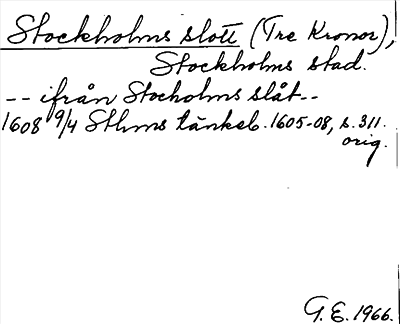 Stockholms slott (Tre Kronor),
Stockholms stad.
-- ifrån Stocholms slåt--
1608 9/4 Sthms tänkeb. 1605-08, s. 311.
orig.
G. E. 1966.